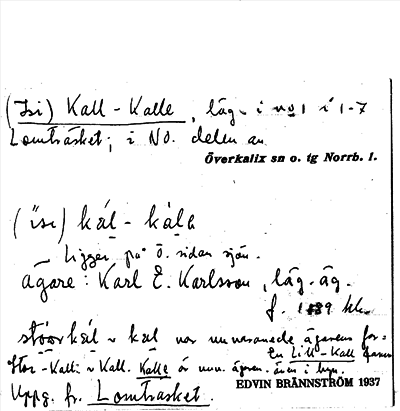 (Isi) Kall-Kalle, läg. i no 1 i 1-7
Lomträsket; i NO. delen av
Överkalix sn o. tg Norrb. l.
(ïsi) kál-kàla
Ligger på Ö. sidan sjön.
ägare: Karl E. Karlsson, läg.äg.
f. 1889 
stóorkál kal var nuvarande ägarens far=
En Lill-Kall fanns
Stor-Kall. Kall. Kalle är nuv. ägaren. även i byn.
Uppg. fr. Lomträsket.
EDVIN BRÄNNSTRÖM 1937